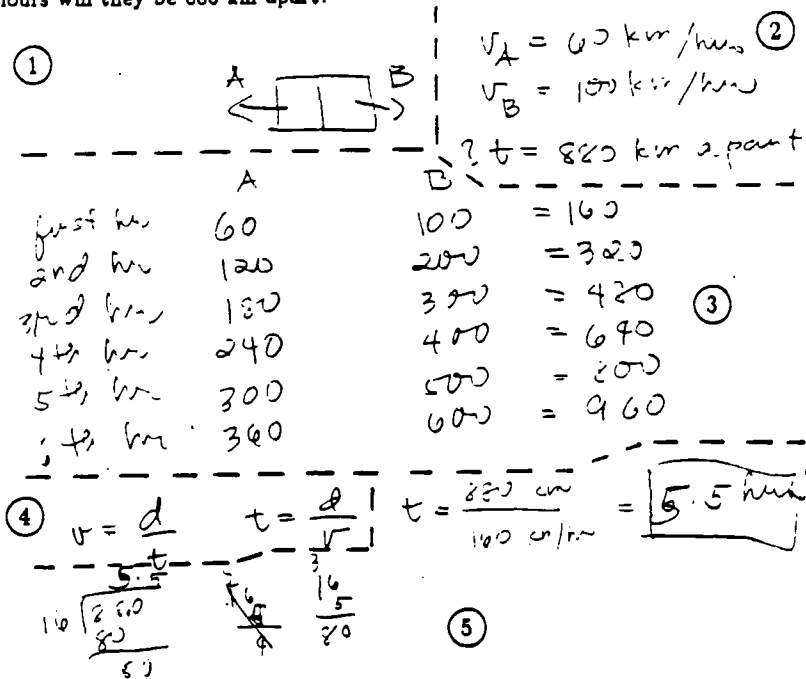 hours will they be 880 km apart?
①
A B
② v_A = 60 km/hr
v_B = 100 km/hr
? t = 880 km apart
A B
first hr 60 100 = 160
2nd hr 120 200 = 320
3rd hr 180 300 = 480 ③
4th hr 240 400 = 640
5th hr 300 500 = 800
th hr 360 600 = 960
④ v = d/t t = d/v t = 880 km / 160 km/hr = 5.5 hrs
5.5
16 880 16
80 5
80 80
⑤